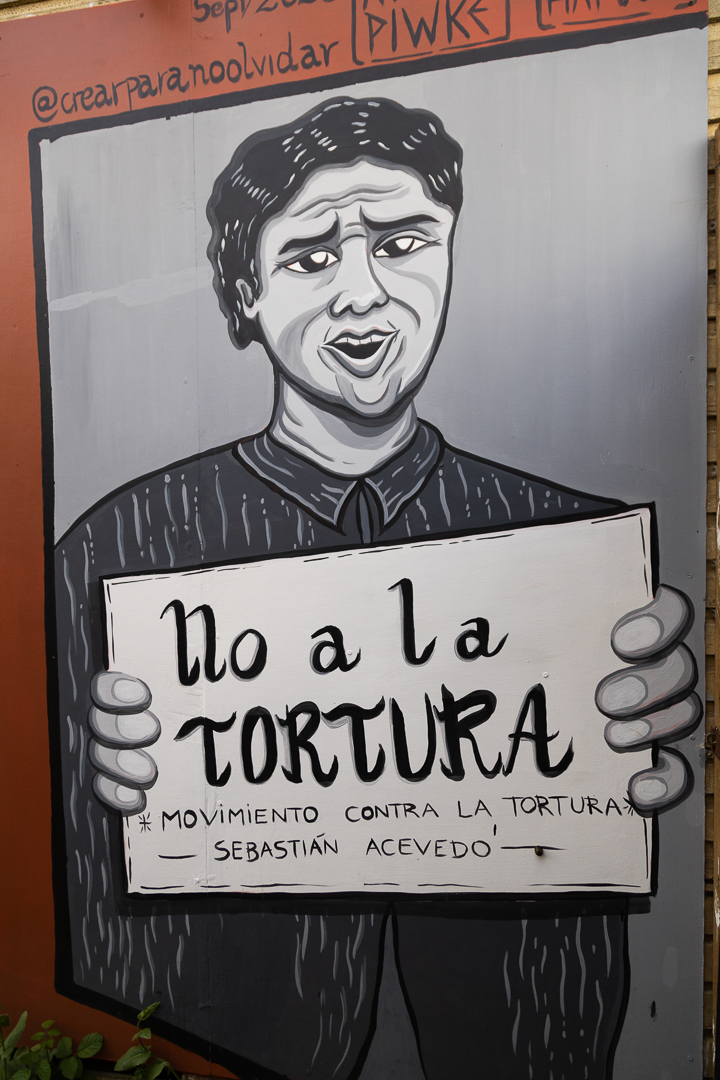 Sept
PIWKE
@crearparanoolvidar
No a la
TORTURA
* MOVIMIENTO CONTRA LA TORTURA*
— SEBASTIÁN ACEVEDO —